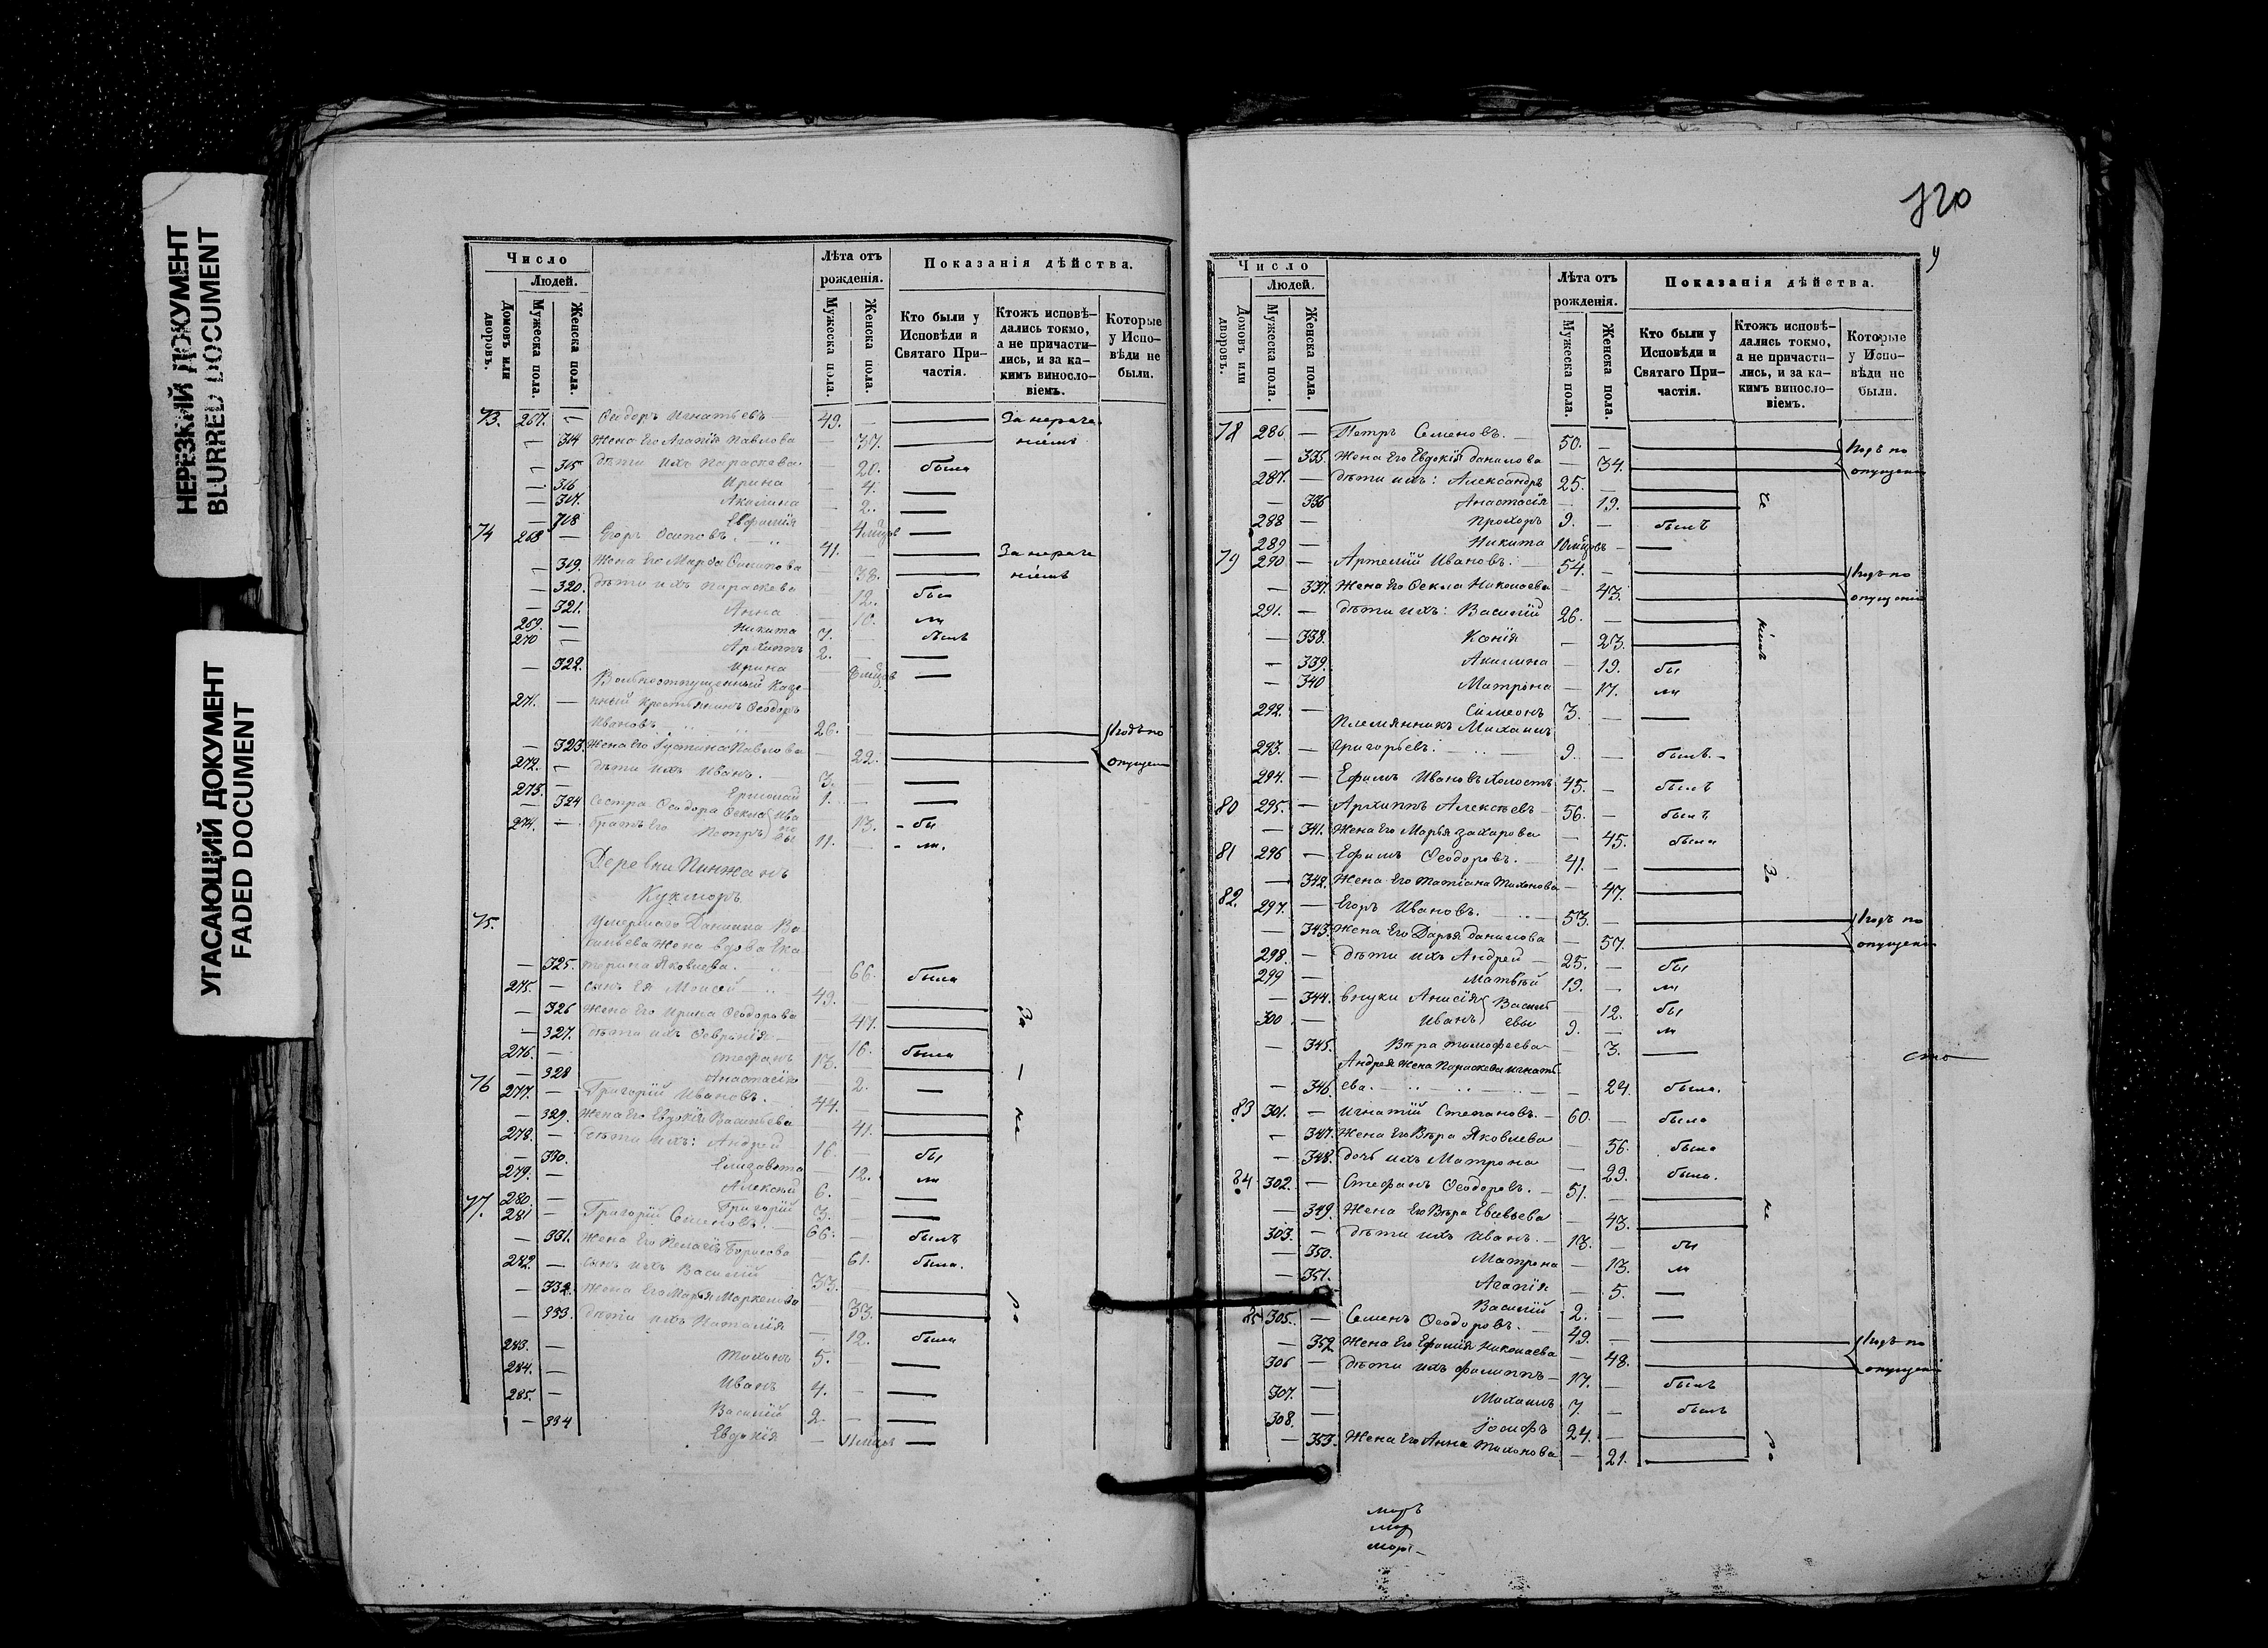 НЕРЕЗКИЙ ДОКУМЕНТ
BLURRED DOCUMENT
УГАСАЮЩИЙ ДОКУМЕНТ
FADED DOCUMENT
Число
Людей.
Домовъ или дворовъ.
Мужеска пола.
Женска пола.
Лѣта отъ рожденія.
Мужеска пола.
Женска пола.
Показанія дѣйства.
Кто были у Исповѣди и Святаго Причастія.
Ктожъ исповѣдались токмо, а не причастились, и за какимъ винословіемъ.
Которые у Исповѣди не были.
73. 267. — Ѳеодоръ Игнатьевъ 49. — За нераче
— 314 Жена его Агапія Павлова — 37. ніемъ
— 315 Дѣти ихъ Параскева — 20. была
— 316 Ирина — 4.
— 317. Акилина — 2.
— 318 Евфимія — 4 мѣсцов
74 268 — Егоръ Осиповъ. 41. За нераче
— 319. Жена его Марѳа Филипова — 38. ніемъ
— 320. Дѣти ихъ Параскева — 12. бы
— 321. Анна — 10. ли
269. — Никита 7. — былъ
270 — Архиппъ 2. —
— 322. Ирина —
Вольноотпущенный Казе-
271. — нный крестьянинъ Ѳеодоръ
Ивановъ 26. — по
— 323. Жена его Павлова — 22.
272. — Дѣти ихъ Иванъ. 3. —
273. — Ермолай 1. —
— 324 Сестра Ѳеодора Ѳекла — 13. бы
274. — братъ его Петръ 11. — ли.
Деревни Пинжанъ
Кукморъ.
75. Умершаго Даниила Ва
сильева жена вдова Ека
— 325. терина Яковлева. — 66. была
275. — сынъ ея Моисей 49. —
— 326 Жена его Ирина Ѳеодорова — 47. За
— 327. Дѣти ихъ Ѳевронія — 16. была
276. — Стефанъ 13. —
— 328 Анастасія — 2.
76 277. — Григорій Ивановъ. 44. —
— 329. Жена его Евдокія Васильева — 41. не
278. — Дѣти ихъ: Андрей 16. — бы
— 330. Елизавета — 12. ли
279. — Алексѣй 6. —
280. — Григорій 3. —
77. 281 — Григорій Семеновъ. 66. — былъ
— 331. Жена его Пелагія Борисова — 61. была.
282. — сынъ ихъ Василій 33. —
— 332. Жена его Марья Маркелова — 33. ра
— 333. Дѣти ихъ Наталія — 12. была
283. — Тихонъ 5.
284. — Иванъ 4. —
285. — Василій 2. —
— 334 Евдокія — 11 мѣсцов
Число
Людей.
Домовъ или дворовъ.
Мужеска пола.
Женска пола.
Лѣта отъ рожденія.
Мужеска пола.
Женска пола.
Показанія дѣйства.
Кто были у Исповѣди и Святаго Причастія.
Ктожъ исповѣдались токмо, а не причастились, и за какимъ винословіемъ.
Которые у Исповѣди не были.
78 286 — Петръ Семеновъ. 50. — по
— 335. Жена его Евдокія Данилова — 34. опущені
287. — Дѣти ихъ: Александръ 25. —
— 336 Анастасія — 19. че
288 — Прохоръ 9. — былъ
289 — Никита 10 мѣсцовъ —
79 290 — Артемій Ивановъ. 54. — по
— 337. Жена его Ѳекла Николаева — 43. опущені
291. — Дѣти ихъ: Василій 26. —
— 338. Ксенія — 23. ніемъ
— 339. Акилина — 19. бы
— 340 Матрона — 17. ли
292. — Симеонъ 3. —
Племянникъ Михаилъ
293. — Григорьевъ. 9. — былъ.
294. — Ефимъ Ивановъ холостъ 45. — былъ
80 295. — Архиппъ Алексѣевъ 56. — былъ
— 341. Жена его Марья Захарова — 45. была
81 296 — Ефимъ Ѳеодоровъ. 41. — За
— 342. Жена его Татіана Тихонова — 47.
82. 297. — Егоръ Ивановъ. 53. — по
— 343. Жена его Дарья Данилова — 57. опущені
298. — Дѣти ихъ Андрей 25. — бы
299 — Матвѣй 19. — ли
— 344. внуки Анисія — 12. бы
300 — Иванъ 9. — ли
— 345. Вѣра Тимофеева — 3.
Андрея жена Параскева Игнать
— 346. ева. — 24. была.
83 301. — Игнатій Степановъ. 60. — было
— 347. Жена его Вѣра Яковлева — 56. была
— 348. дочь ихъ Матрона — 29. была.
84 302. — Стефанъ Ѳеодоровъ. 51. — не
— 349. Жена его Вѣра Евсевьева — 43.
303. — Дѣти ихъ Иванъ. 13. — бы
— 350. Матрона — 13. ли
— 351. Агапія — 5.
Василій 2. —
85 305. — Семенъ Ѳеодоровъ. 49. — по
— 352 Жена его Ефимія Николаева — 48. опущені
306 — Дѣти ихъ Филиппъ 17. — былъ
307. — Михаилъ 7. — былъ
308. — Іосифъ 24. — ра
— 353. Жена его Анна Тихонова — 21.